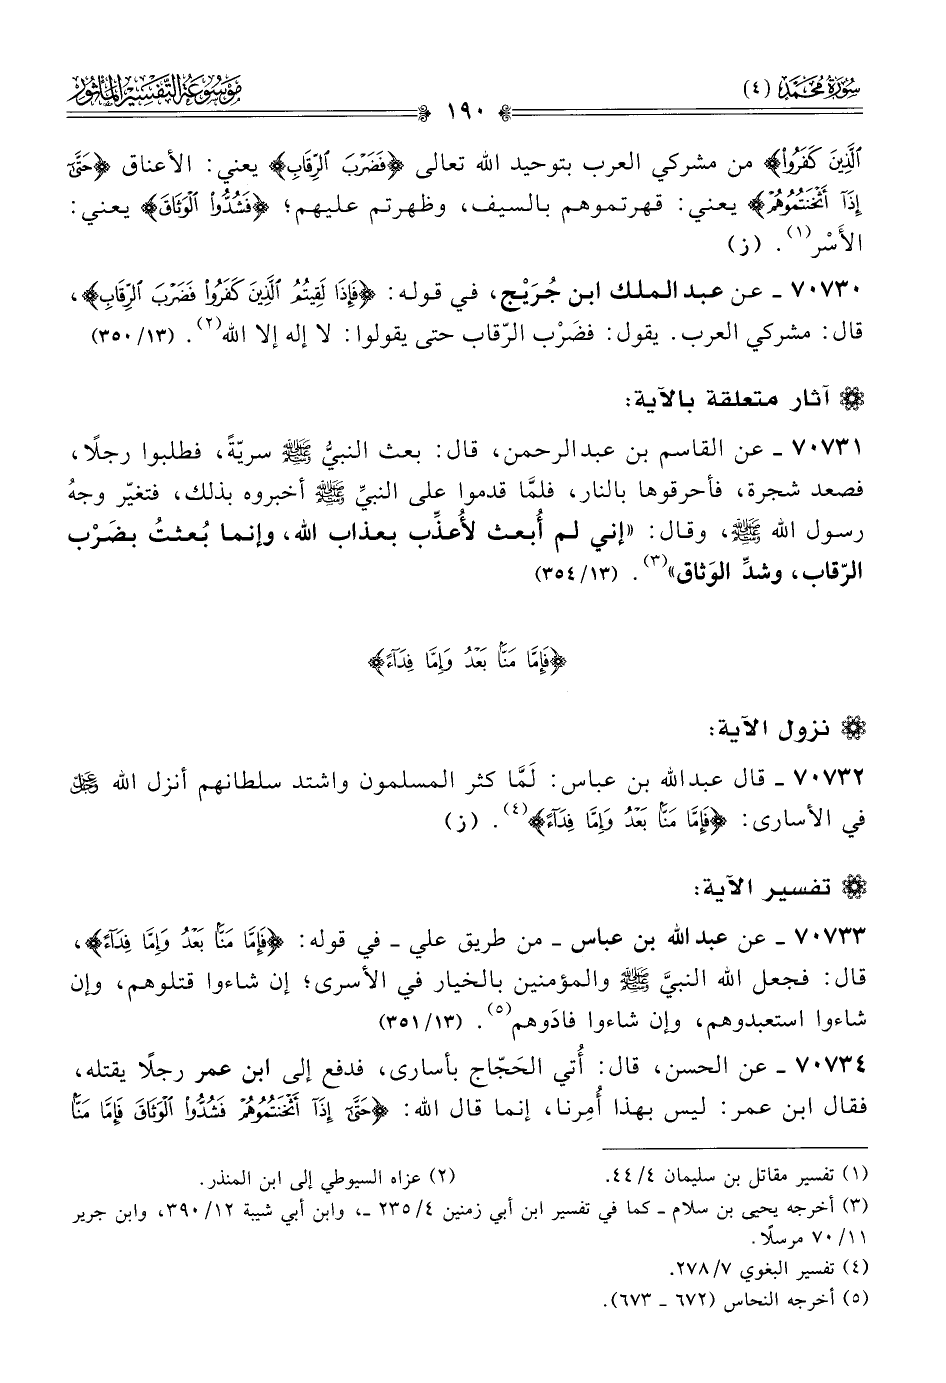 سُورَةُ مُحَمَّد (٤)
١٩٠
مَوْسُوعَةُ التَّفْسِيرِ المَأْثُور
الَّذِينَ كَفَرُوا﴾ من مشركي العرب بتوحيد الله تعالى ﴿فَضَرْبَ الرِّقَابِ﴾ يعني: الأعناق ﴿حَتَّىٰ
إِذَا أَثْخَنتُمُوهُمْ﴾ يعني: قهرتموهم بالسيف، وظهرتم عليهم؛ ﴿فَشُدُّوا الْوَثَاقَ﴾ يعني:
الأَسْر(١). (ز)
٧٠٧٣٠ ـ عن عبد الملك ابن جُرَيْج، في قوله: ﴿فَإِذَا لَقِيتُمُ الَّذِينَ كَفَرُوا فَضَرْبَ الرِّقَابِ﴾،
قال: مشركي العرب. يقول: فضَرْب الرّقاب حتى يقولوا: لا إله إلا الله(٢). (١٣/ ٣٥٠)
آثار متعلقة بالآية:
٧٠٧٣١ ـ عن القاسم بن عبدالرحمن، قال: بعث النبيُّ ﷺ سريّةً، فطلبوا رجلًا،
فصعد شجرة، فأحرقوها بالنار، فلمَّا قدموا على النبيِّ ﷺ أخبروه بذلك، فتغيّر وجهُ
رسول الله ﷺ، وقال: «إني لم أُبعث لأُعذِّب بعذاب الله، وإنما بُعثتُ بضَرْب
الرّقاب، وشدِّ الوَثاق»(٣). (١٣/ ٣٥٤)
﴿فَإِمَّا مَنًّا بَعْدُ وَإِمَّا فِدَاءً﴾
نزول الآية:
٧٠٧٣٢ ـ قال عبدالله بن عباس: لَمَّا كثر المسلمون واشتد سلطانهم أنزل الله ﷻ
في الأسارى: ﴿فَإِمَّا مَنًّا بَعْدُ وَإِمَّا فِدَاءً﴾(٤). (ز)
تفسير الآية:
٧٠٧٣٣ ـ عن عبدالله بن عباس ـ من طريق علي ـ في قوله: ﴿فَإِمَّا مَنًّا بَعْدُ وَإِمَّا فِدَاءً﴾،
قال: فجعل الله النبيَّ ﷺ والمؤمنين بالخيار في الأسرى؛ إن شاءوا قتلوهم، وإن
شاءوا استعبدوهم، وإن شاءوا فادَوهم(٥). (١٣/ ٣٥١)
٧٠٧٣٤ ـ عن الحسن، قال: أُتي الحَجّاج بأسارى، فدفع إلى ابن عمر رجلًا يقتله،
فقال ابن عمر: ليس بهذا أُمِرنا، إنما قال الله: ﴿حَتَّىٰ إِذَا أَثْخَنتُمُوهُمْ فَشُدُّوا الْوَثَاقَ فَإِمَّا مَنًّا
(١) تفسير مقاتل بن سليمان ٤/ ٤٤. (٢) عزاه السيوطي إلى ابن المنذر.
(٣) أخرجه يحيى بن سلام ـ كما في تفسير ابن أبي زمنين ٤/ ٢٣٥ ـ، وابن أبي شيبة ١٢/ ٣٩٠، وابن جرير
١١/ ٧٠ مرسلًا.
(٤) تفسير البغوي ٧/ ٢٧٨.
(٥) أخرجه النحاس (٦٧٢ ـ ٦٧٣).